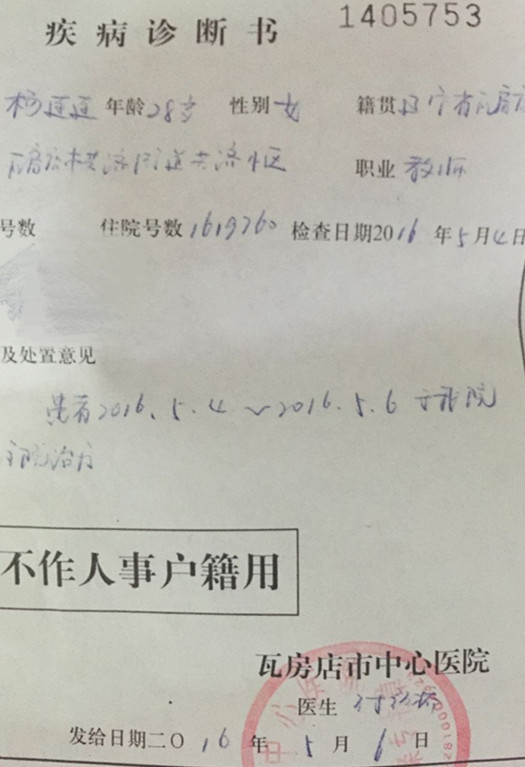 疾病诊断书 1405753
杨莲莲 年龄28岁 性别女 籍贯辽宁省瓦房
瓦房店市共济街道共济小区 职业教师
号数 住院号数1619760 检查日期2016年5月4日
及处置意见
患者2016.5.4~2016.5.6于我院
住院治疗
不作人事户籍用
瓦房店市中心医院
医生
发给日期二〇16年5月6日